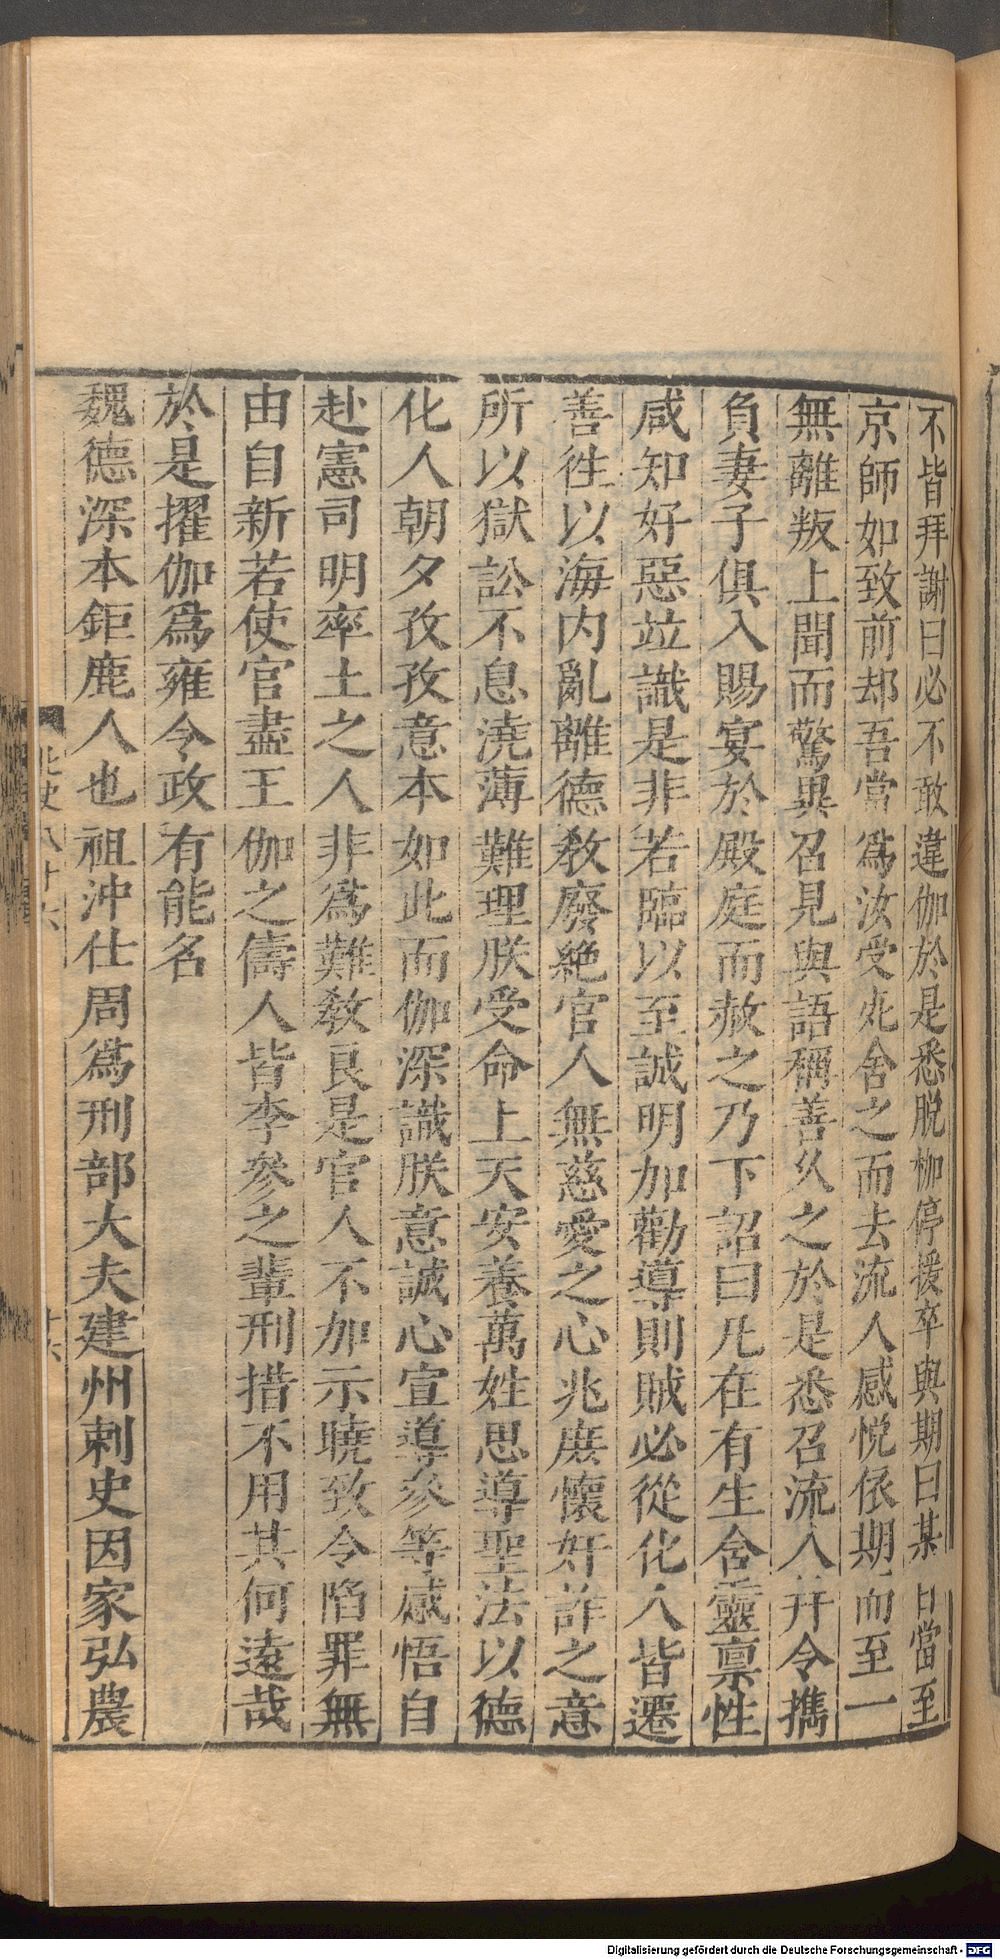 不皆拜謝曰必不敢違伽於是悉脱枷停援卒與期曰某日當至
京師如致前却吾當爲汝受死舍之而去流人感悦依期而至一
無離叛上聞而驚異召見與語稱善久之於是悉召流人并令擕
負妻子俱入賜宴於殿庭而赦之乃下詔曰凡在有生含靈禀性
咸知好惡竝識是非若臨以至誠明加勸導則賊必從化人皆遷
善徃以海内亂離德敎廢絶官人無慈愛之心兆庶懷奸詐之意
所以獄訟不息澆薄難理朕受命上天安養萬姓思導聖法以德
化人朝夕孜孜意本如此而伽深識朕意誠心宣導參等感悟自
赴憲司明率土之人非爲難敎良是官人不加示曉致令陷罪無
由自新若使官盡王伽之儔人皆李參之輩刑措不用其何遠哉
於是擢伽爲雍令政有能名
魏德深本鉅鹿人也祖沖仕周爲刑部大夫建州刺史因家弘農
北史八十六
十六
Digitalisierung gefördert durch die Deutsche Forschungsgemeinschaft - DFG